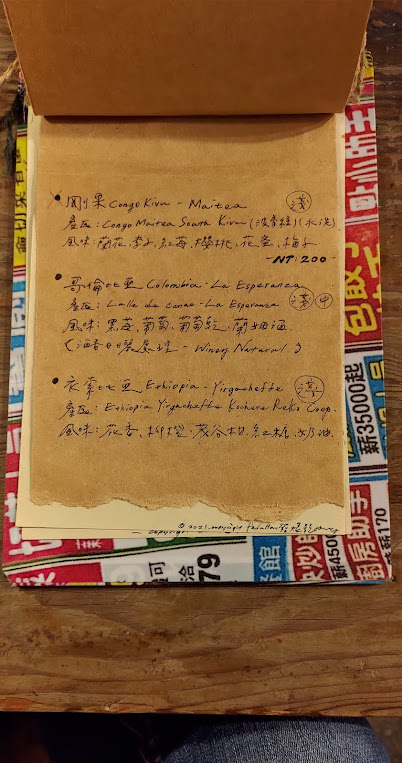 剛果 Congo Kivu - Maitea 淺
產區: Congo Maitea South Kivu (波旁種)(水洗)
風味: 蘭花、李子、紅莓、櫻桃、花蜜、梅子
- NT: 200 -
哥倫比亞 Colombia - La Esperanza 淺中
產區: Lalle de cauae - La Esperanza
風味: 黑莓、葡萄、葡萄乾、蘭姆酒
(酒香日曬處理 - Winey Natural)
衣索比亞 Ethiopia - Yirgacheffe 淺
產區: Ethiopia Yirgacheffe Kochere Reko Coop.
風味: 花香、柳橙、茂谷柑、紅糖、奶油
© 2021. copyright
copyright
包餃子
點心師
薪35000起
廚房助手
快炒師
薪4500
薪170
餐館
79